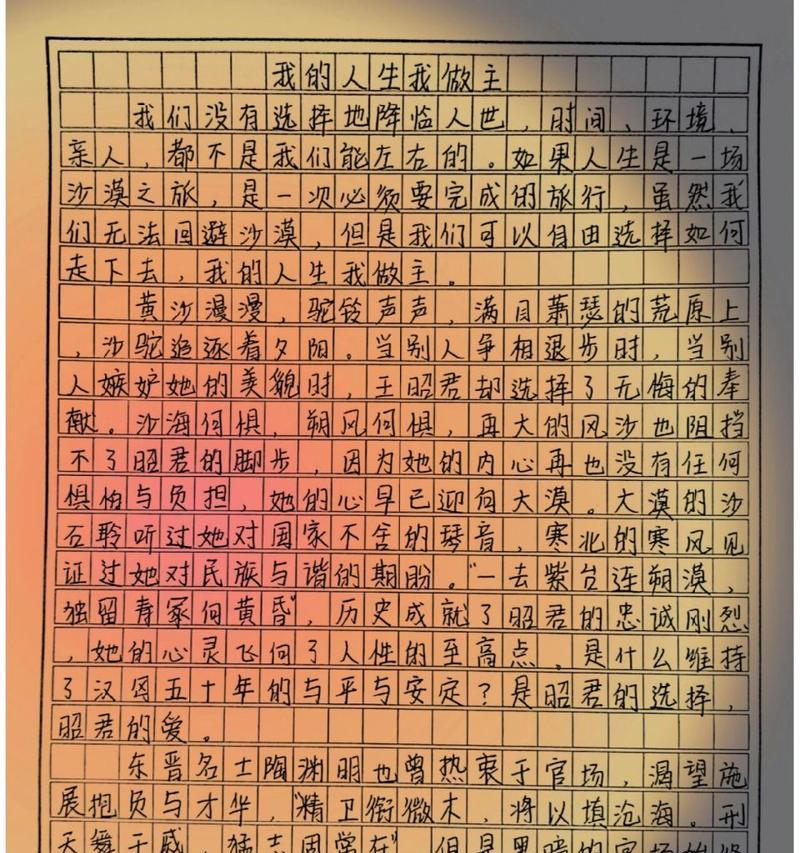 我的人生我做主
我们没有选择地降临人世，时间、环境、
亲人，都不是我们能左右的。如果人生是一场
沙漠之旅，是一次必须要完成的旅行，虽然我
们无法回避沙漠，但是我们可以自由选择如何
走下去，我的人生我做主。
黄沙漫漫，驼铃声声，满目萧瑟的荒原上
，沙驼追逐着夕阳。当别人争相退步时，当别
人嫉妒她的美貌时，王昭君却选择了无悔的奉
献。沙海何惧，朔风何惧，再大的风沙也阻挡
不了昭君的脚步，因为她的内心再也没有任何
惧怕与负担，她的心早已迎向大漠。大漠的沙
石聆听过她对国家不舍的琴音，寒北的寒风见
证过她对民族与谐的期盼。“一去紫台连朔漠，
独留青冢向黄昏”，历史成就了昭君的忠诚刚烈
，她的心灵飞向了人性的至高点，是什么维持
了汉匈五十年的与平与安定？是昭君的选择，
昭君的爱。
东晋名士陶渊明也曾热衷于官场，渴望施
展抱负与才华，“精卫衔微木，将以填沧海。刑
天舞干戚，猛志固常在”，但是黑暗的官场始终